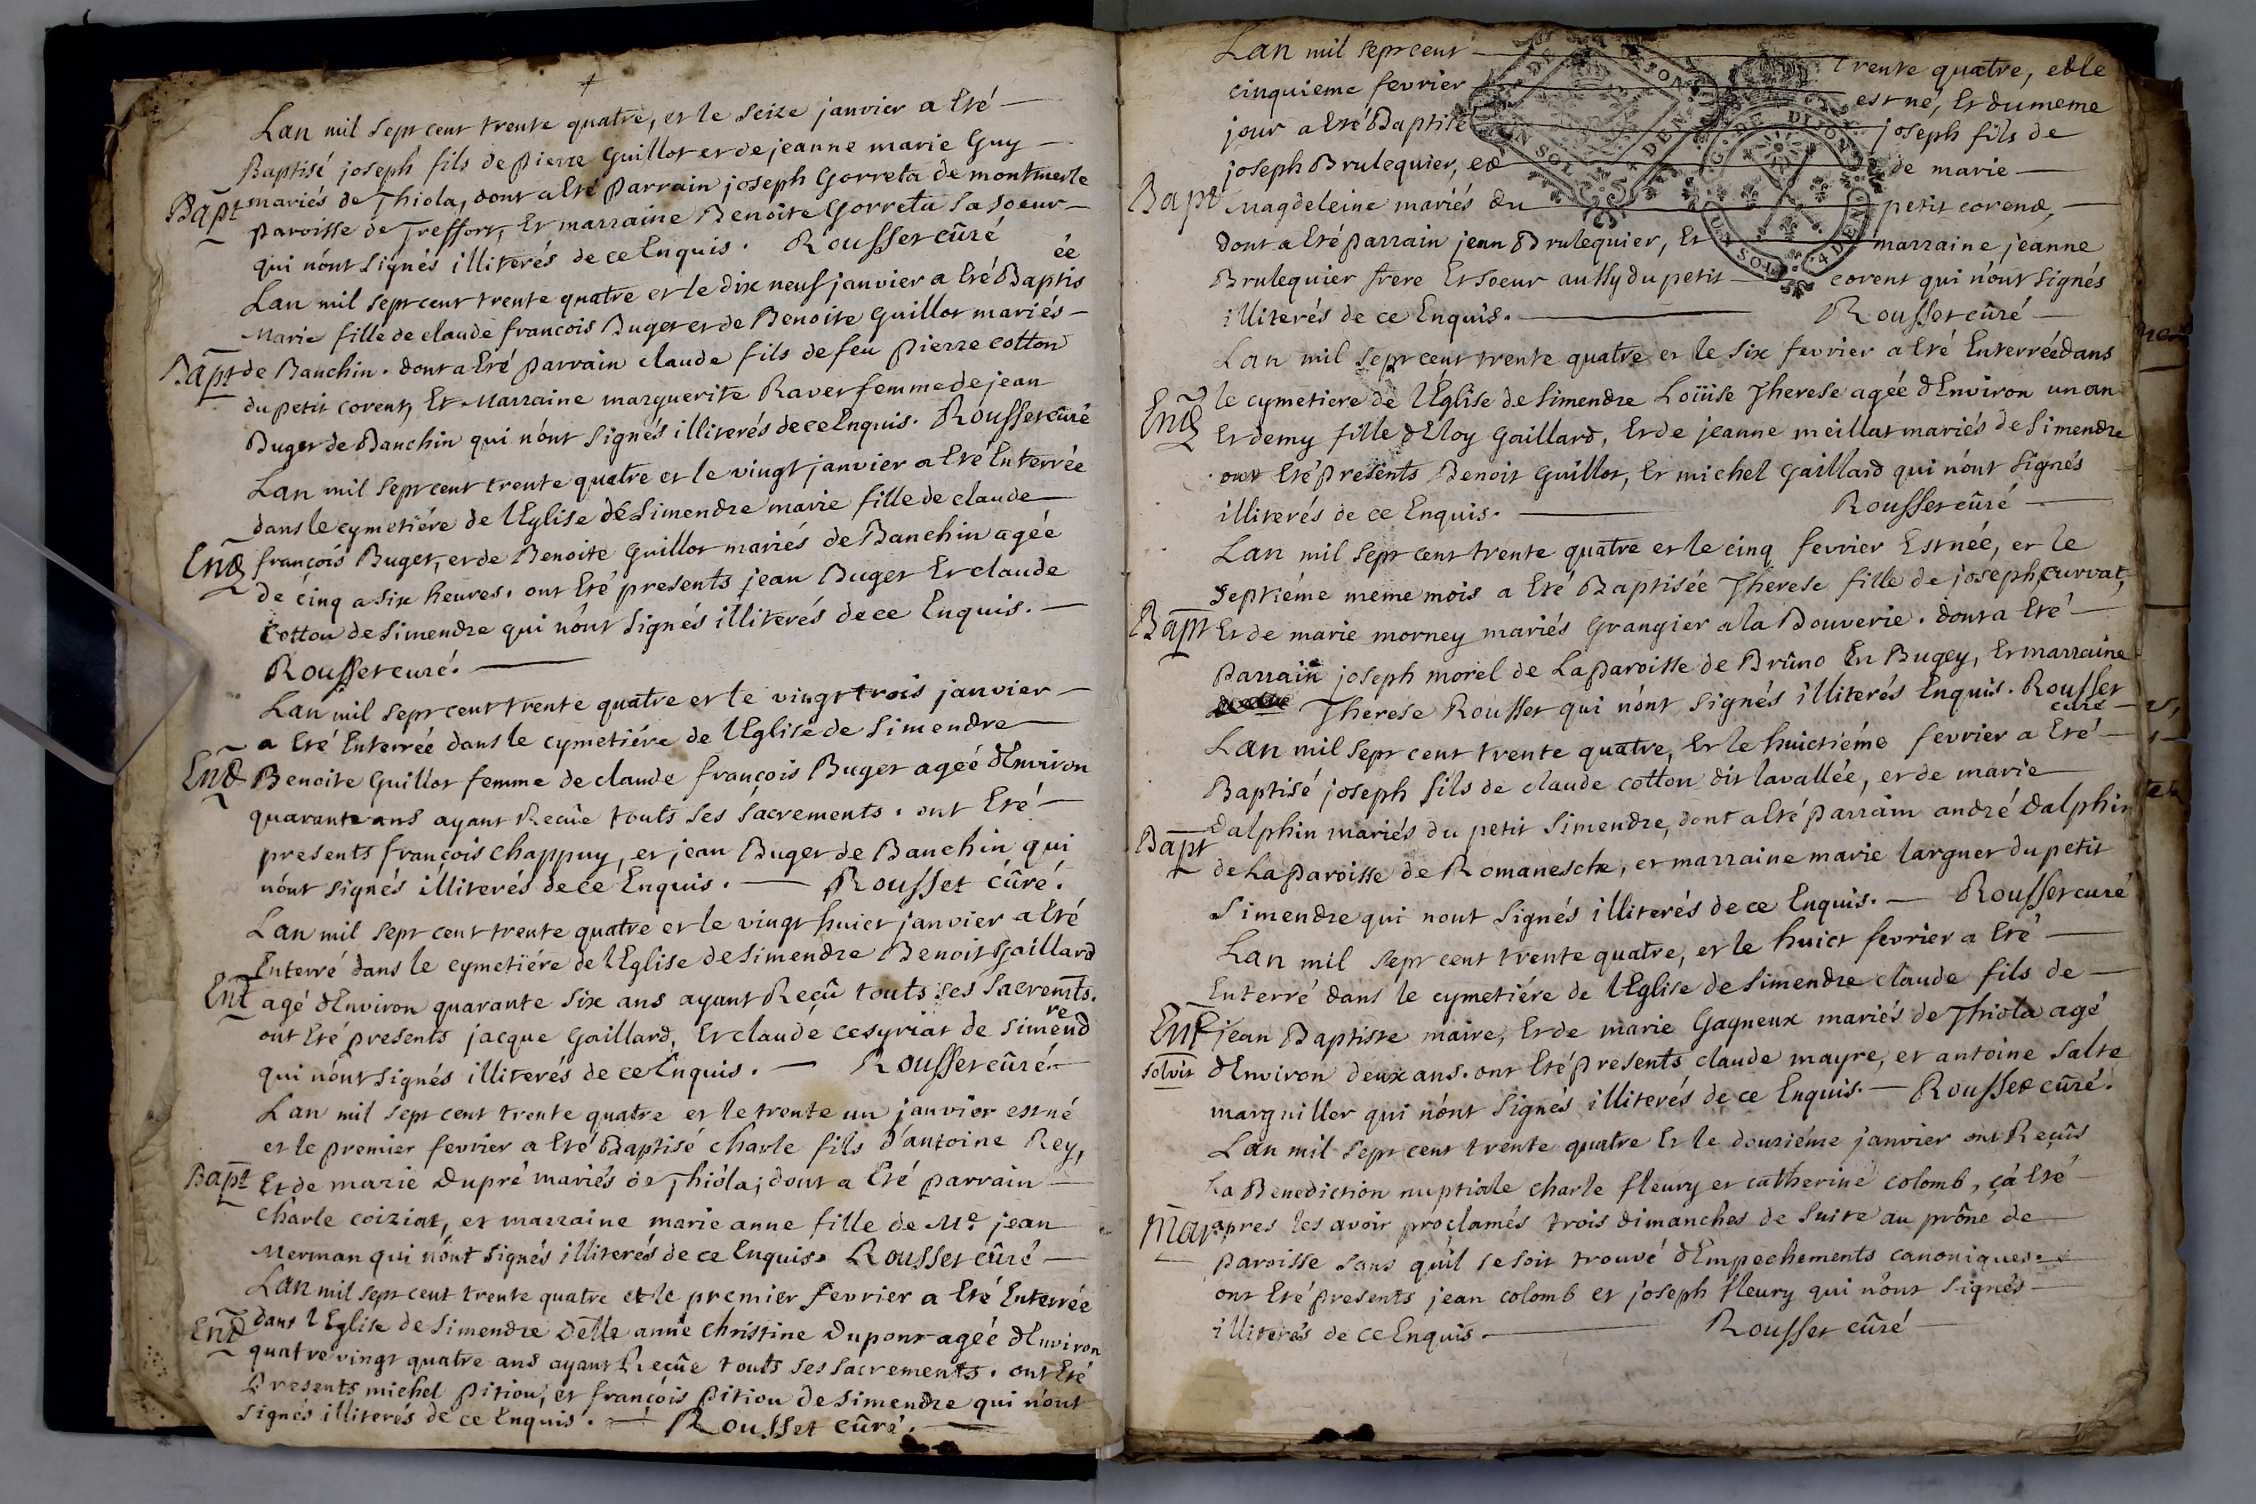 Lan mil sept cent trente quatre, et le seize janvier a Eté
Baptisé joseph fils de pierre Guillot et de jeanne marie Guy
Bapt mariés de Thiola, dont a Eté parrain joseph Gorreta de montmerle
paroisse de Treffort, Et marraine Benoite Gorreta sa soeur
qui n'ont signés illiterés de ce Enquis. Rousset curé
Lan mil sept cent trente quatre et le dix neuf janvier a Eté Baptisée
Marie fille de claude francois Buget et de Benoite Guillot mariés
Bapt de Banchin. dont a Eté parrain claude fils de feu pierre cotton
du petit corent, Et Marraine marguerite Ravet femme de jean
Buget de Banchin qui n'ont signés illiterés de ce Enquis. Rousset curé
Lan mil sept cent trente quatre et le vingt janvier a Eté Enterrée
dans le cymetiére de l'Eglise de Simendre marie fille de claude
Ent françois Buget, et de Benoite Guillot mariés de Banchin agée
de cinq a six heures. ont Eté presents jean Buget Et claude
Cotton de Simendre qui n'ont signés illiterés de ce Enquis.
Rousset curé.
Lan mil sept cent trente quatre et le vingt trois janvier
a Eté Enterrée dans le cymetiére de l'Eglise de Simendre
Ent Benoite Guillot femme de claude françois Buget agée d'Environ
quarante ans ayant Recûe touts ses sacrements. ont Eté
presents françois chappuy, et jean Buget de Banchin qui
n'ont signés illiterés de ce Enquis. Rousset cûré.
Lan mil sept cent trente quatre et le vingt huict janvier a Eté
Enterré dans le cymetiére de l'Eglise de Simendre Benoit Gaillard
Ent agé d'Environ quarante six ans ayant Reçû touts ses sacremts.
ont Eté presents jacque Gaillard, Et claude cesyriat de Simendre
qui n'ont signés illiterés de ce Enquis. Rousset cûré.
Lan mil sept cent trente quatre et le trente un janvier est né
et le premier fevrier a Eté Baptisé charle fils d'antoine Rey,
Bapt Et de marie Dupré mariés de Thióla; dont a Eté parrain
charle coiziat, et marraine marie anne fille de Me. jean
Merman qui n'ont signés illiterés de ce Enquis. Rousset cûré
Lan mil sept cent trente quatre et le premier fevrier a Eté Enterrée
Ent dans l'Eglise de Simendre Delle anne Christine Dupont agée d'Environ
quatre vingt quatre ans ayant Reçûe touts ses sacrements. ont Eté
Presents michel pitiou, et françois pitiou de Simendre qui n'ont
signés illiterés de ce Enquis. Rousset cûré.
Lan mil sept cent trente quatre, et le
cinquieme fevrier est né, Et du meme
jour a Eté Baptisé joseph fils de
joseph Brulequier, et de marie
Bapt Magdeleine mariés du petit corend,
Dont a Eté parrain jean Brulequier, Et marraine jeanne
Brulequier frere Et soeur aussy du petit corent qui n'ont signés
illiterés de ce Enquis. Rousset cûré
Lan mil sept cent trente quatre et le six fevrier a Eté Enterrée dans
Ent le cymetiere de l'Eglise de Simendre Loüise Therese agée d'Environ un an
Et demy fille d'Eloy Gaillard, Et de jeanne meillat mariés de Simendre
ont Eté presents Benoit Guillot, Et michel Gaillard qui n'ont signés
illiterés de ce Enquis. Rousset cûré
Lan mil sept cent trente quatre et le cinq fevrier Est née, et le
septiéme meme mois a Eté Baptisée Therese fille de joseph curvat,
Bapt Et de marie morney mariés Grangier a la Bouverie. dont a Eté
parrain joseph morel de La paroisse de Brûno En Bugey, Et marraine
Therese Rousset qui n'ont signés illiterés Enquis. Rousset curé
Lan mil sept cent trente quatre, Et le huictiéme fevrier a Eté
Baptisé joseph fils de claude cotton dit lavallée, et de marie
Dalphin mariés du petit Simendre, dont a Eté parrain andré Dalphin
Bapt de La paroisse de Romanesche, et marraine marie larguet du petit
Simendre qui n'ont signés illiterés de ce Enquis. Rousset curé
Lan mil sept cent trente quatre, et le huict fevrier a Eté
Enterré dans le cymetiére de l'Eglise de Simendre claude fils de
Ent jean Baptiste maire, Et de marie Gagneux mariés de Thiola agé
solvit d'Environ deux ans. ont Eté presents claude mayre, et antoine salte
marguiller qui n'ont signés illiterés de ce Enquis. Rousset cûré.
Lan mil sept cent trente quatre Et le douziéme janvier ont Reçûs
La Benediction nuptiale charle fleury et catherine colomb, çà Eté
Mar apres les avoir proclamés trois dimanches de suite au prône de
paroisse sans qu'il se soit trouvé d'Empechements canoniques.
ont Eté presents jean colomb et joseph fleury qui n'ont signés
illiterés de ce Enquis Rousset cûré